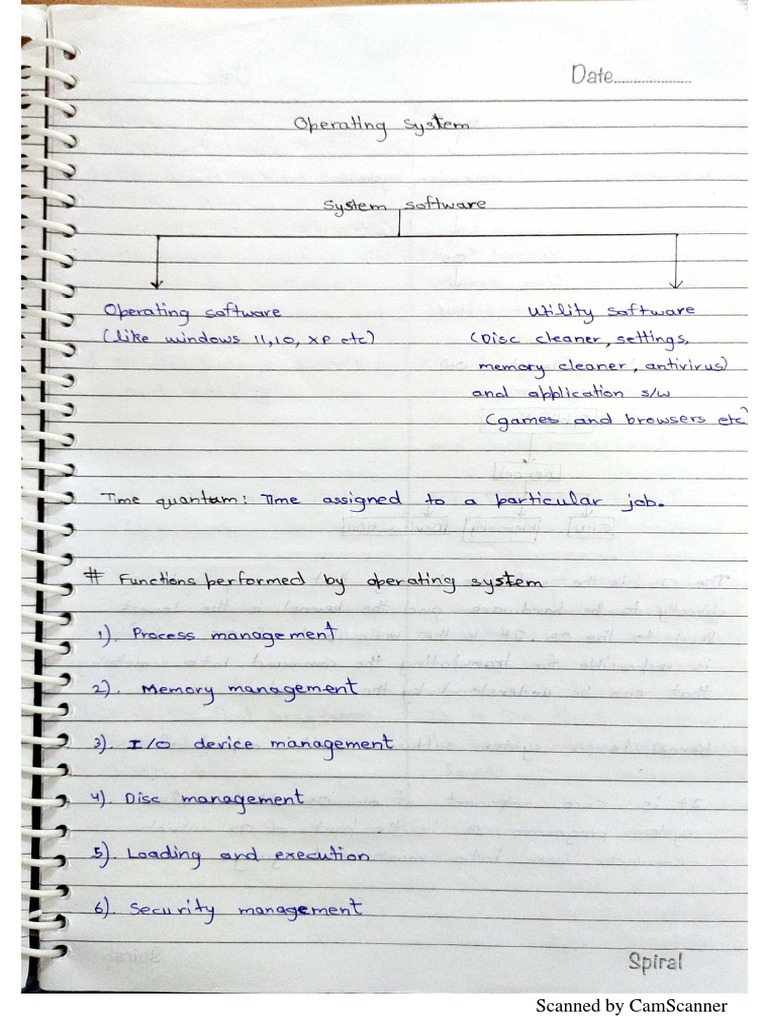 Date....................
Operating system
System software
Operating software
Utility software
(like windows 11,10, XP etc)
(Disc cleaner, settings,
memory cleaner, antivirus)
and application s/w
(games and browsers etc)
Time quantum: Time assigned to a particular job.
# Functions performed by operating system
1). Process management
2). Memory management
3). I/O device management
4). Disc management
5). Loading and execution
6). Security management
Spiral
Scanned by CamScanner